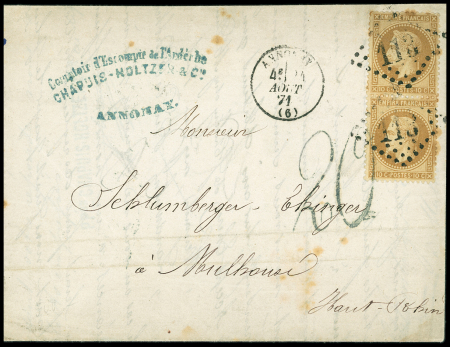 Comptoir d'Escompte de l'Ardèche
CHAPUIS-HOLTZER & Cie
ANNONAY.
ANNONAY
4E
AOUT
71
(6)
113
113
10 C POSTES 10 C
20
Monsieur
Schlumberger-Ehinger
à Mulhouse
Haut-Rhin